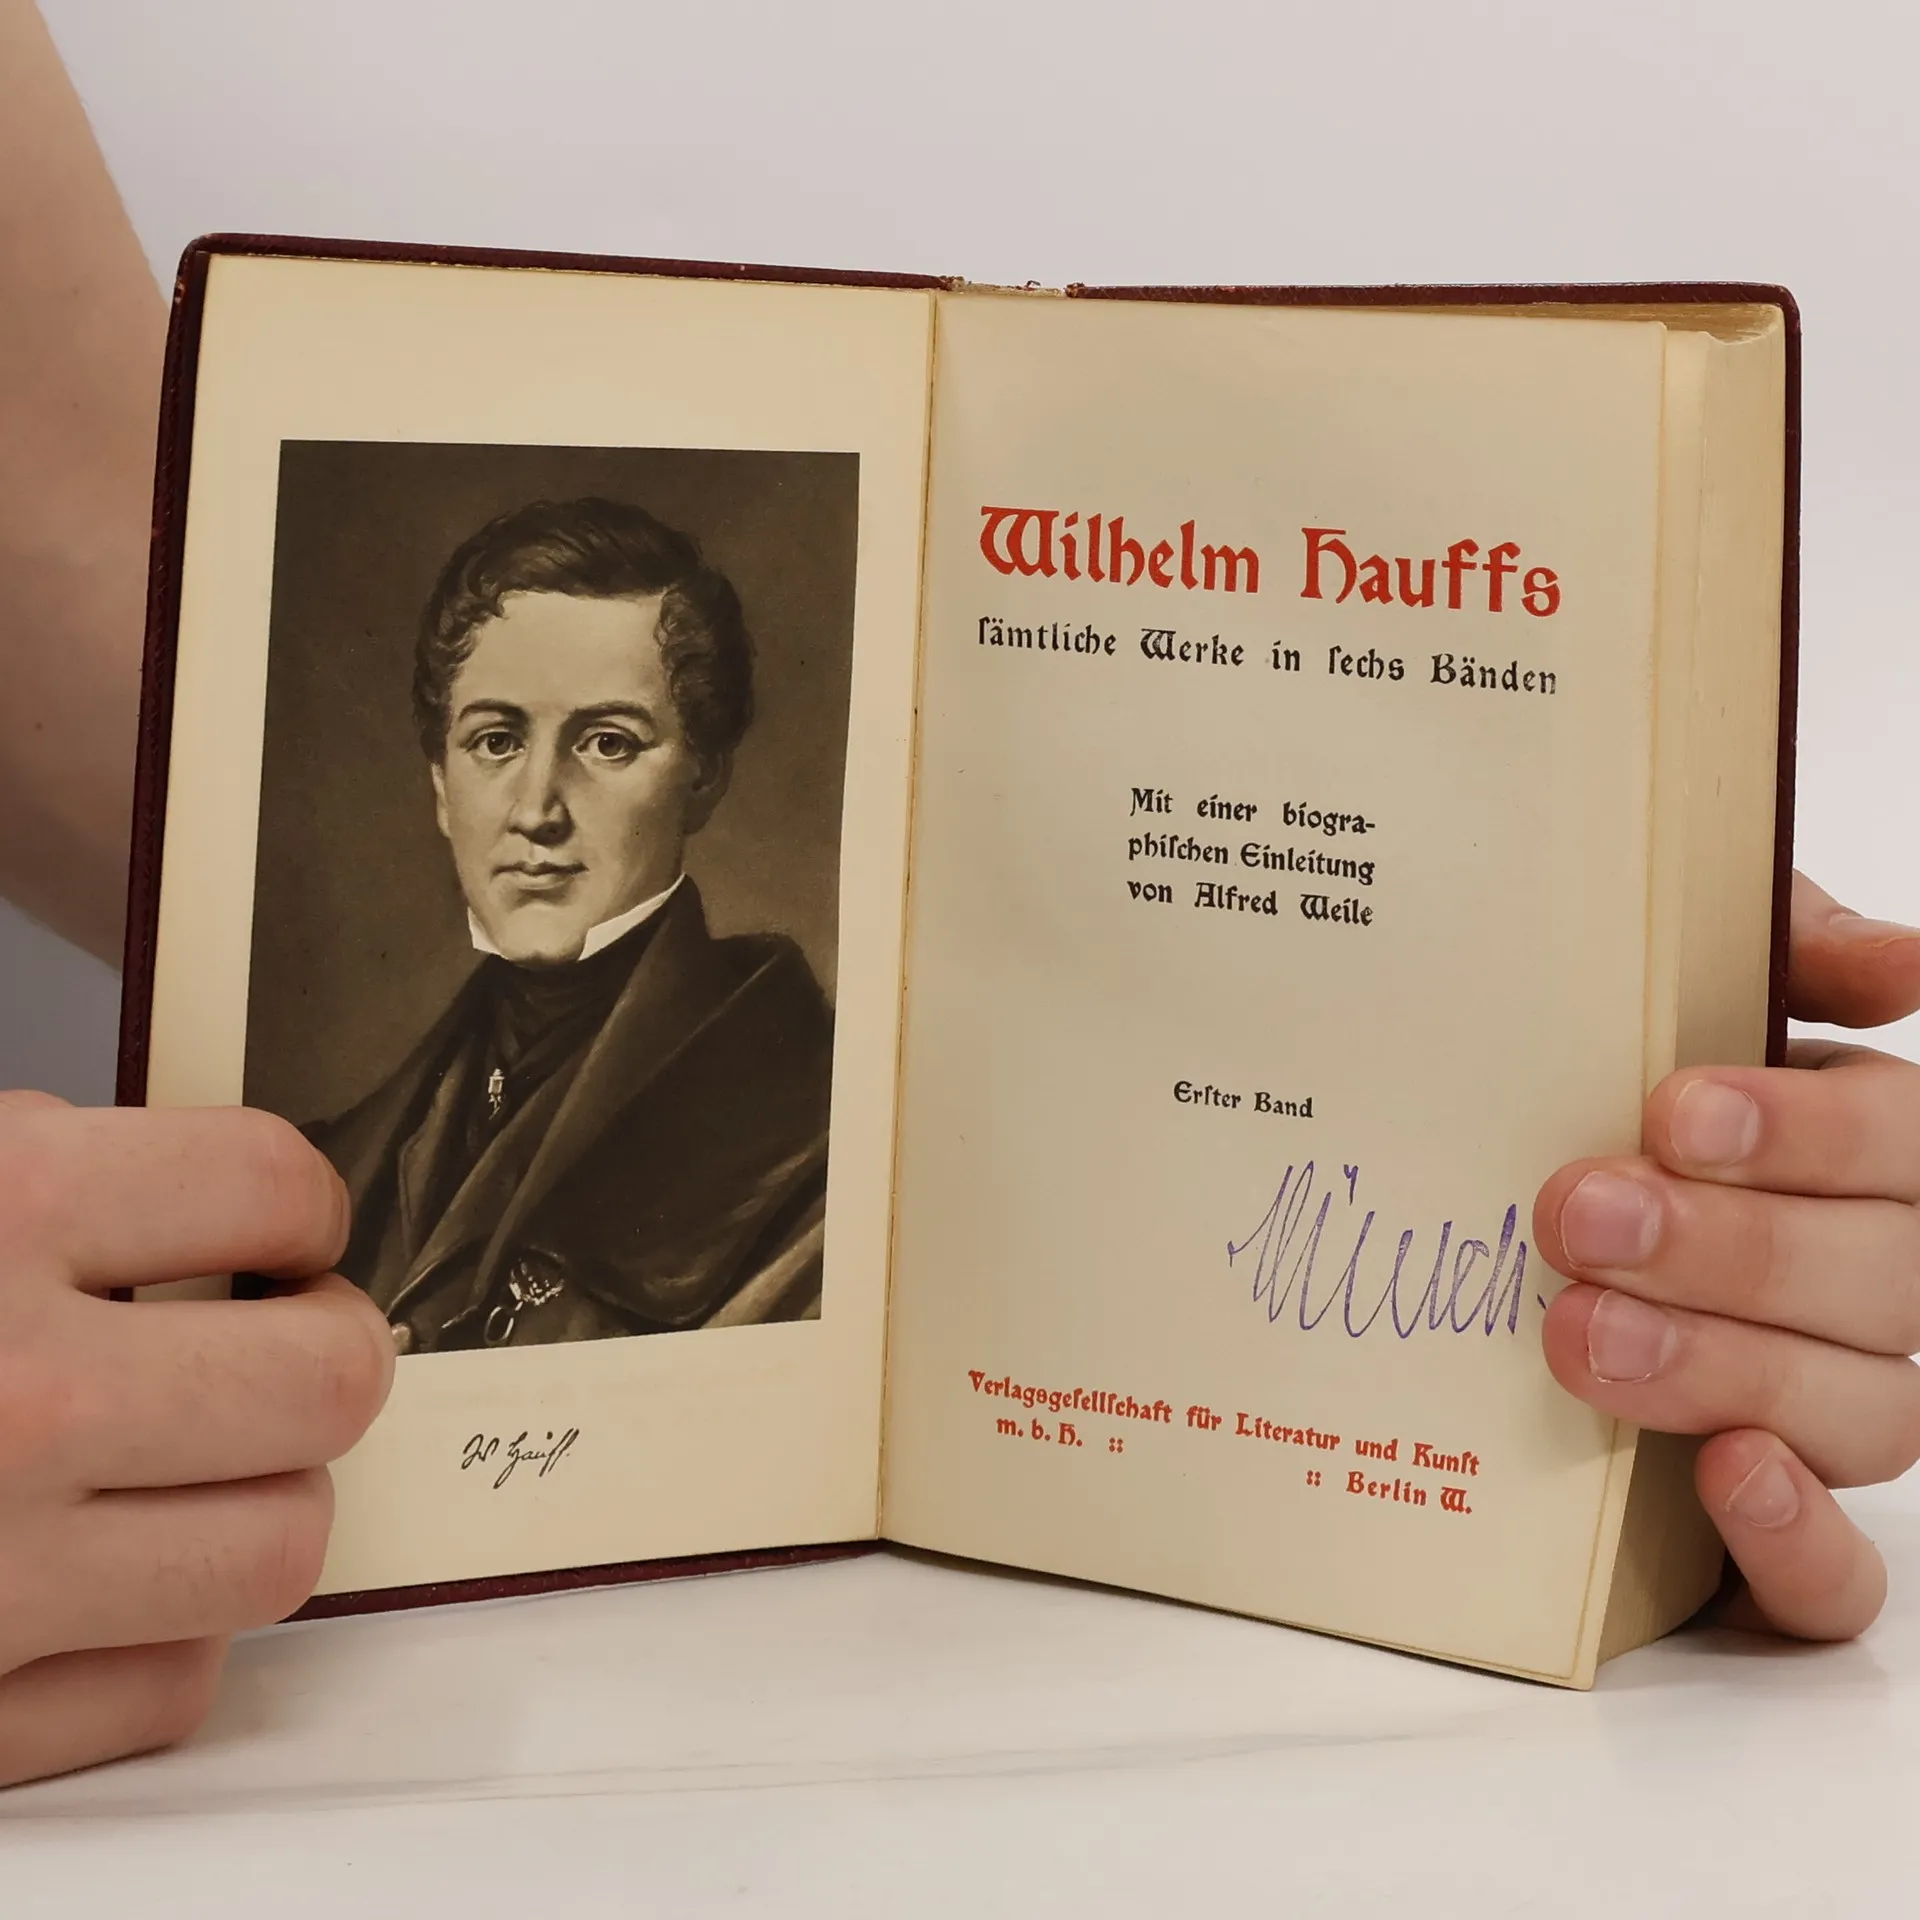 W Hauff.
Wilhelm Hauffs
ſämtliche Werke in ſechs Bänden
Mit einer biogra-
phiſchen Einleitung
von Alfred Weile
Erſter Band
Verlagsgeſellſchaft für Literatur und Kunſt
m. b. H. ::
:: Berlin W.